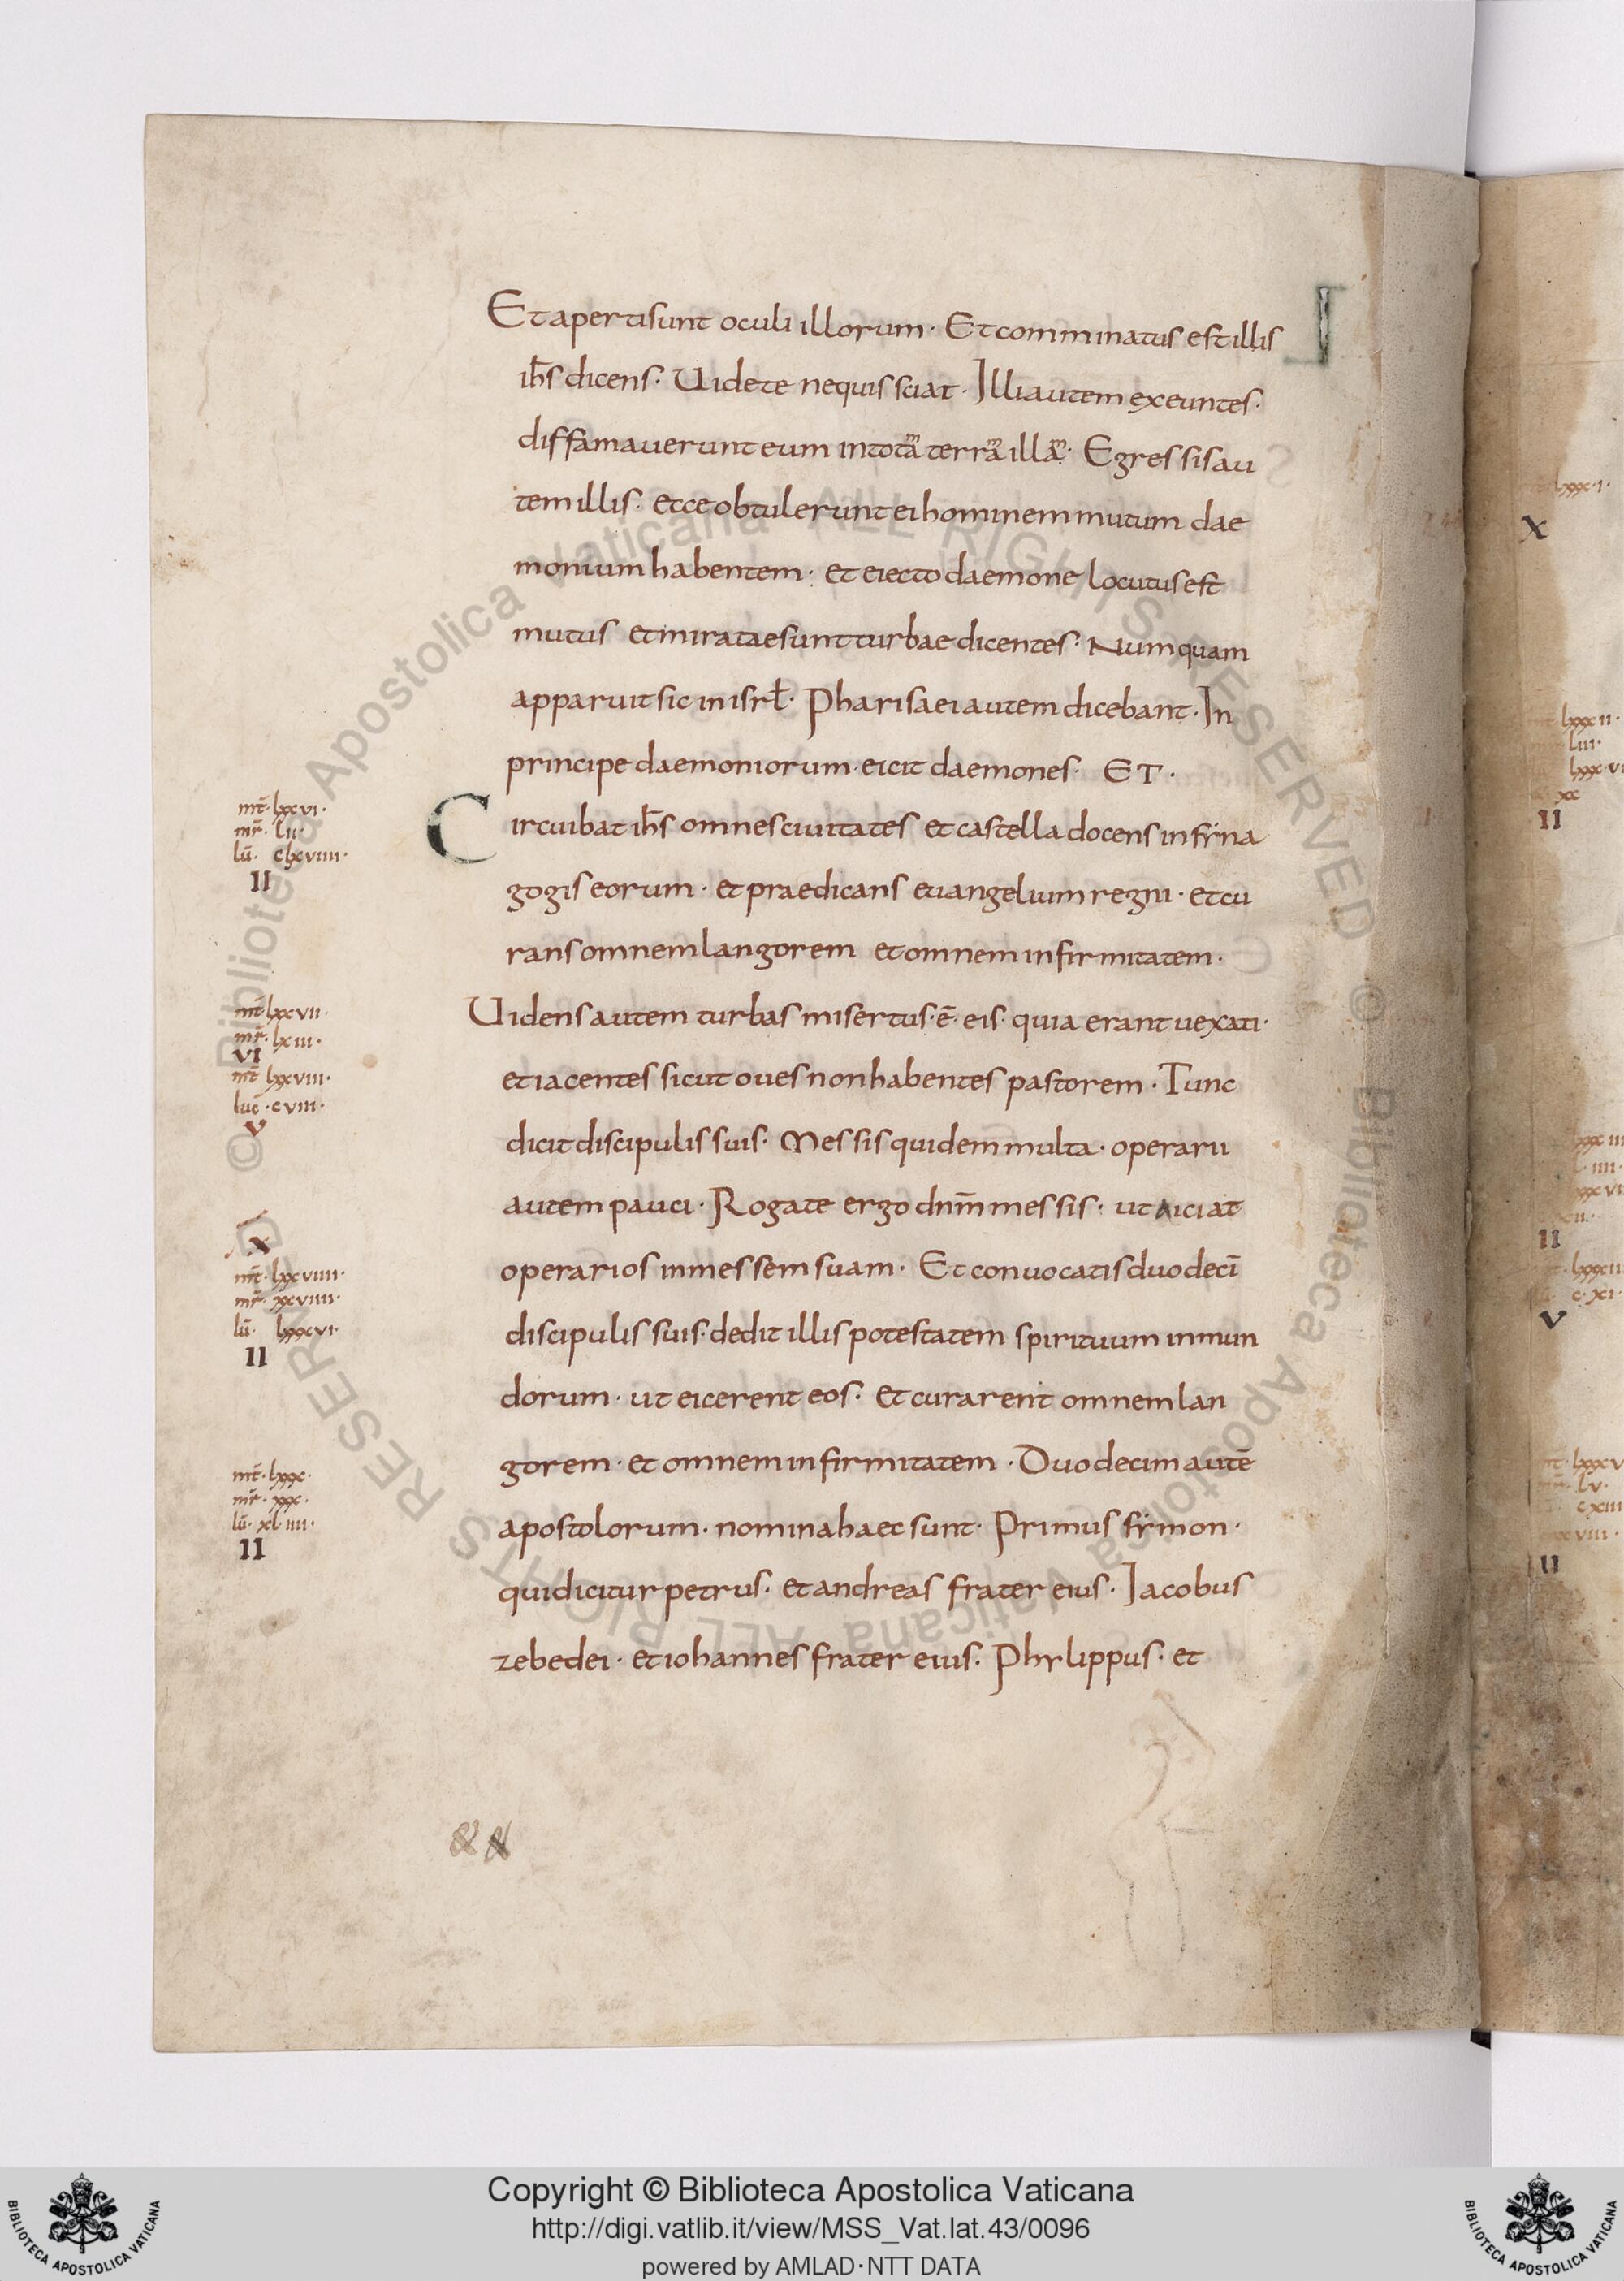 Et aperti sunt oculi illorum · Et comminatus est illis
ih̅s dicens · Uidete nequis sciat · Illi autem exeuntes ·
diffamauerunt eum in totā terrā illā · Egressis au
tem illis · ecce obtulerunt ei hominem mutum dae
monium habentem · et eiecto daemone locutus est
mutus et miratae sunt turbae dicentes · Numquam
apparuit sic in isrł · Pharisaei autem dicebant · In
principe daemoniorum · eicit daemones · ET ·
Circuibat ih̅s omnes ciuitates et castella docens in syna
gogis eorum · et praedicans euangelium regni · et cu
rans omnem langorem et omnem infirmitatem ·
Uidens autem turbas misertus · ē · eis · quia erant uexati ·
et iacentes sicut oues non habentes pastorem · Tunc
dicit discipulis suis · Messis quidem multa · operarii
autem pauci · Rogate ergo dn̅m messis · ut aiciat
operarios in messem suam · Et conuocatis duodecī
discipulis suis · dedit illis potestatem spirituum inmun
dorum · ut eicerent eos · et curarent omnem lan
gorem · et omnem infirmitatem · Duodecim autē
apostolorum · nomina haec sunt · Primus symon ·
qui dicitur petrus · et andreas frater eius · Iacobus
zebedei · et iohannes frater eius · Phylippus · et
mt̅ · lxxvi ·
mr̅ · lii ·
lū · clxviiii ·
II
mt̅ lxxvii ·
mr̅ · lxiii ·
VI
mt̅ lxxviii ·
luc̅ · cviii ·
V
X
mt̅ · lxxviiii ·
mr̅ · xxviiii ·
lū · lxxxvi ·
II
mt̅ · lxxx ·
mr̅ · xxx ·
lū · xliiii ·
II
& &
X
II
II
V
II
© Biblioteca Apostolica Vaticana ALL RIGHTS RESERVED
© Biblioteca Apostolica Vaticana ALL RIGHTS RESERVED
BIBLIOTECA APOSTOLICA VATICANA
Copyright © Biblioteca Apostolica Vaticana
http://digi.vatlib.it/view/MSS_Vat.lat.43/0096
powered by AMLAD·NTT DATA
BIBLIOTECA APOSTOLICA VATICANA